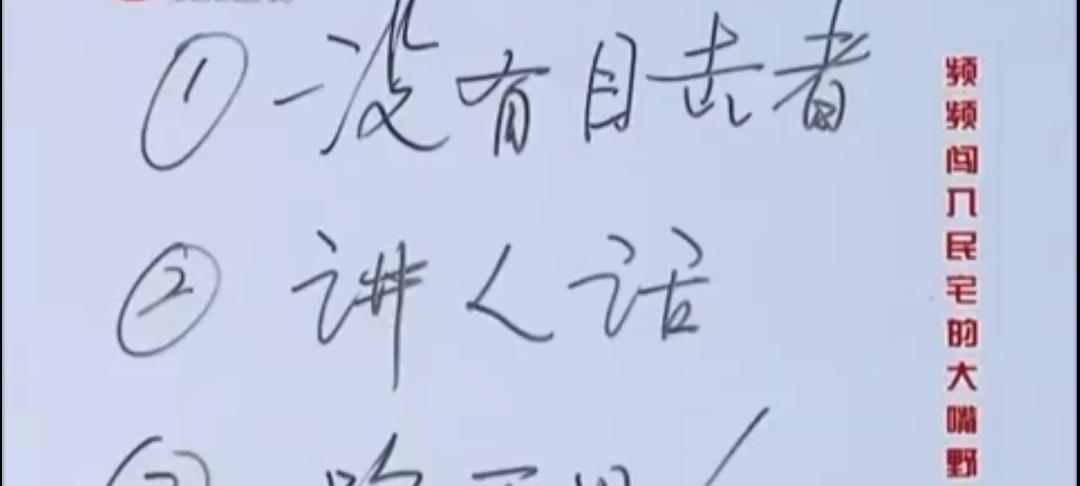 ① 一没有目击者
② 讲人话
频频闯入民宅的大嘴野